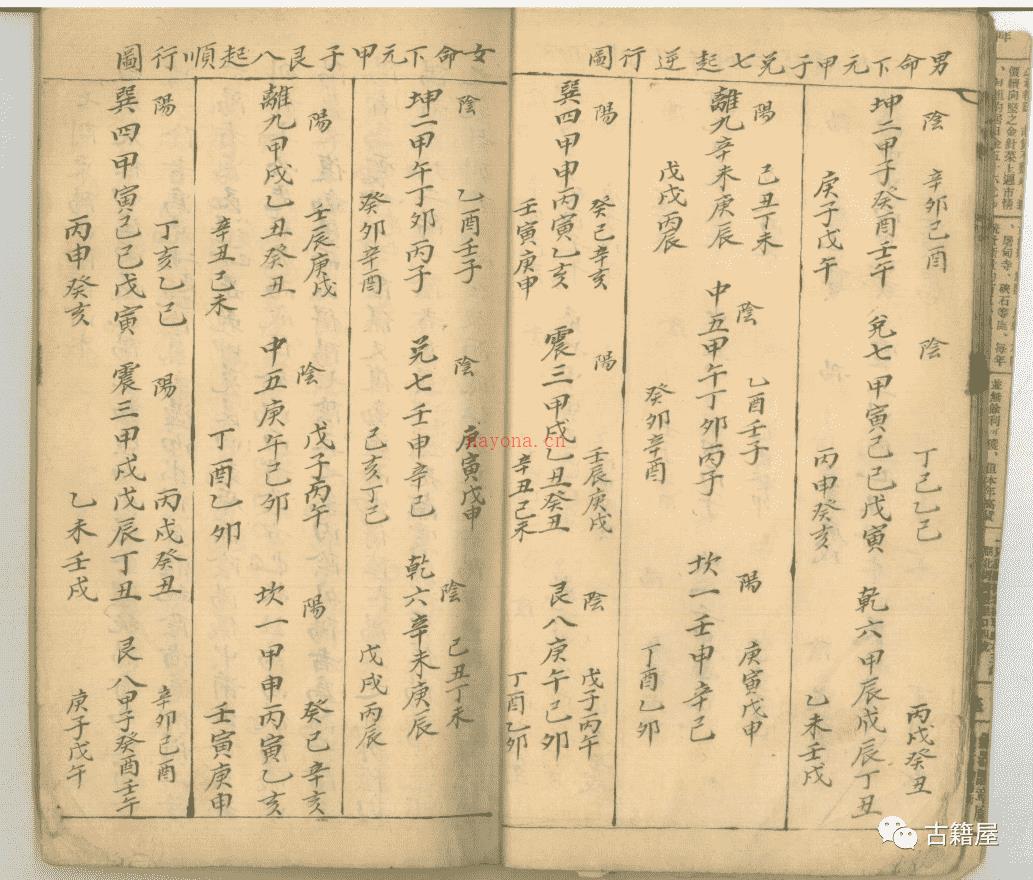 男命下元甲子兌七起逆行圖
陰 辛卯己酉 陰 丁巳乙巳 丙戌癸丑
坤二甲子癸酉壬午 兌七甲寅己巳戊寅 乾六甲辰戊辰丁丑
庚子戊午 丙申癸亥 乙未壬戌
陽 己丑丁未 陰 乙酉壬子 陽 庚寅戊申
離九辛未庚辰 中五甲午丁卯丙子 坎一壬申辛巳
戊戌丙辰 癸卯辛酉 丁酉乙卯
陽 癸巳辛亥 陽 壬辰庚戌 陰 戊子丙午
巽四甲申丙寅乙亥 震三甲戌乙丑癸丑 艮八庚午己卯
壬寅庚申 辛丑己未 丁酉乙卯
女命下元甲子艮八起順行圖
陰 乙酉壬子 陰 庚寅戊申 陰 己丑丁未
坤二甲午丁卯丙子 兌七壬申辛巳 乾六辛未庚辰
癸卯辛酉 己亥丁巳 戊戌丙辰
陽 壬辰庚戌 陰 戊子丙午 陽 癸巳辛亥
離九甲戌乙丑癸丑 中五庚午己卯 坎一甲申丙寅乙亥
辛丑己未 丁酉乙卯 壬寅庚申
陽 丁亥乙巳 陽 丙戌癸丑 辛卯己酉
巽四甲寅己巳戊寅 震三甲戌戊辰丁丑 艮八甲子癸酉壬午
丙申癸亥 乙未壬戌 庚子戊午
nayona.cn
古籍屋